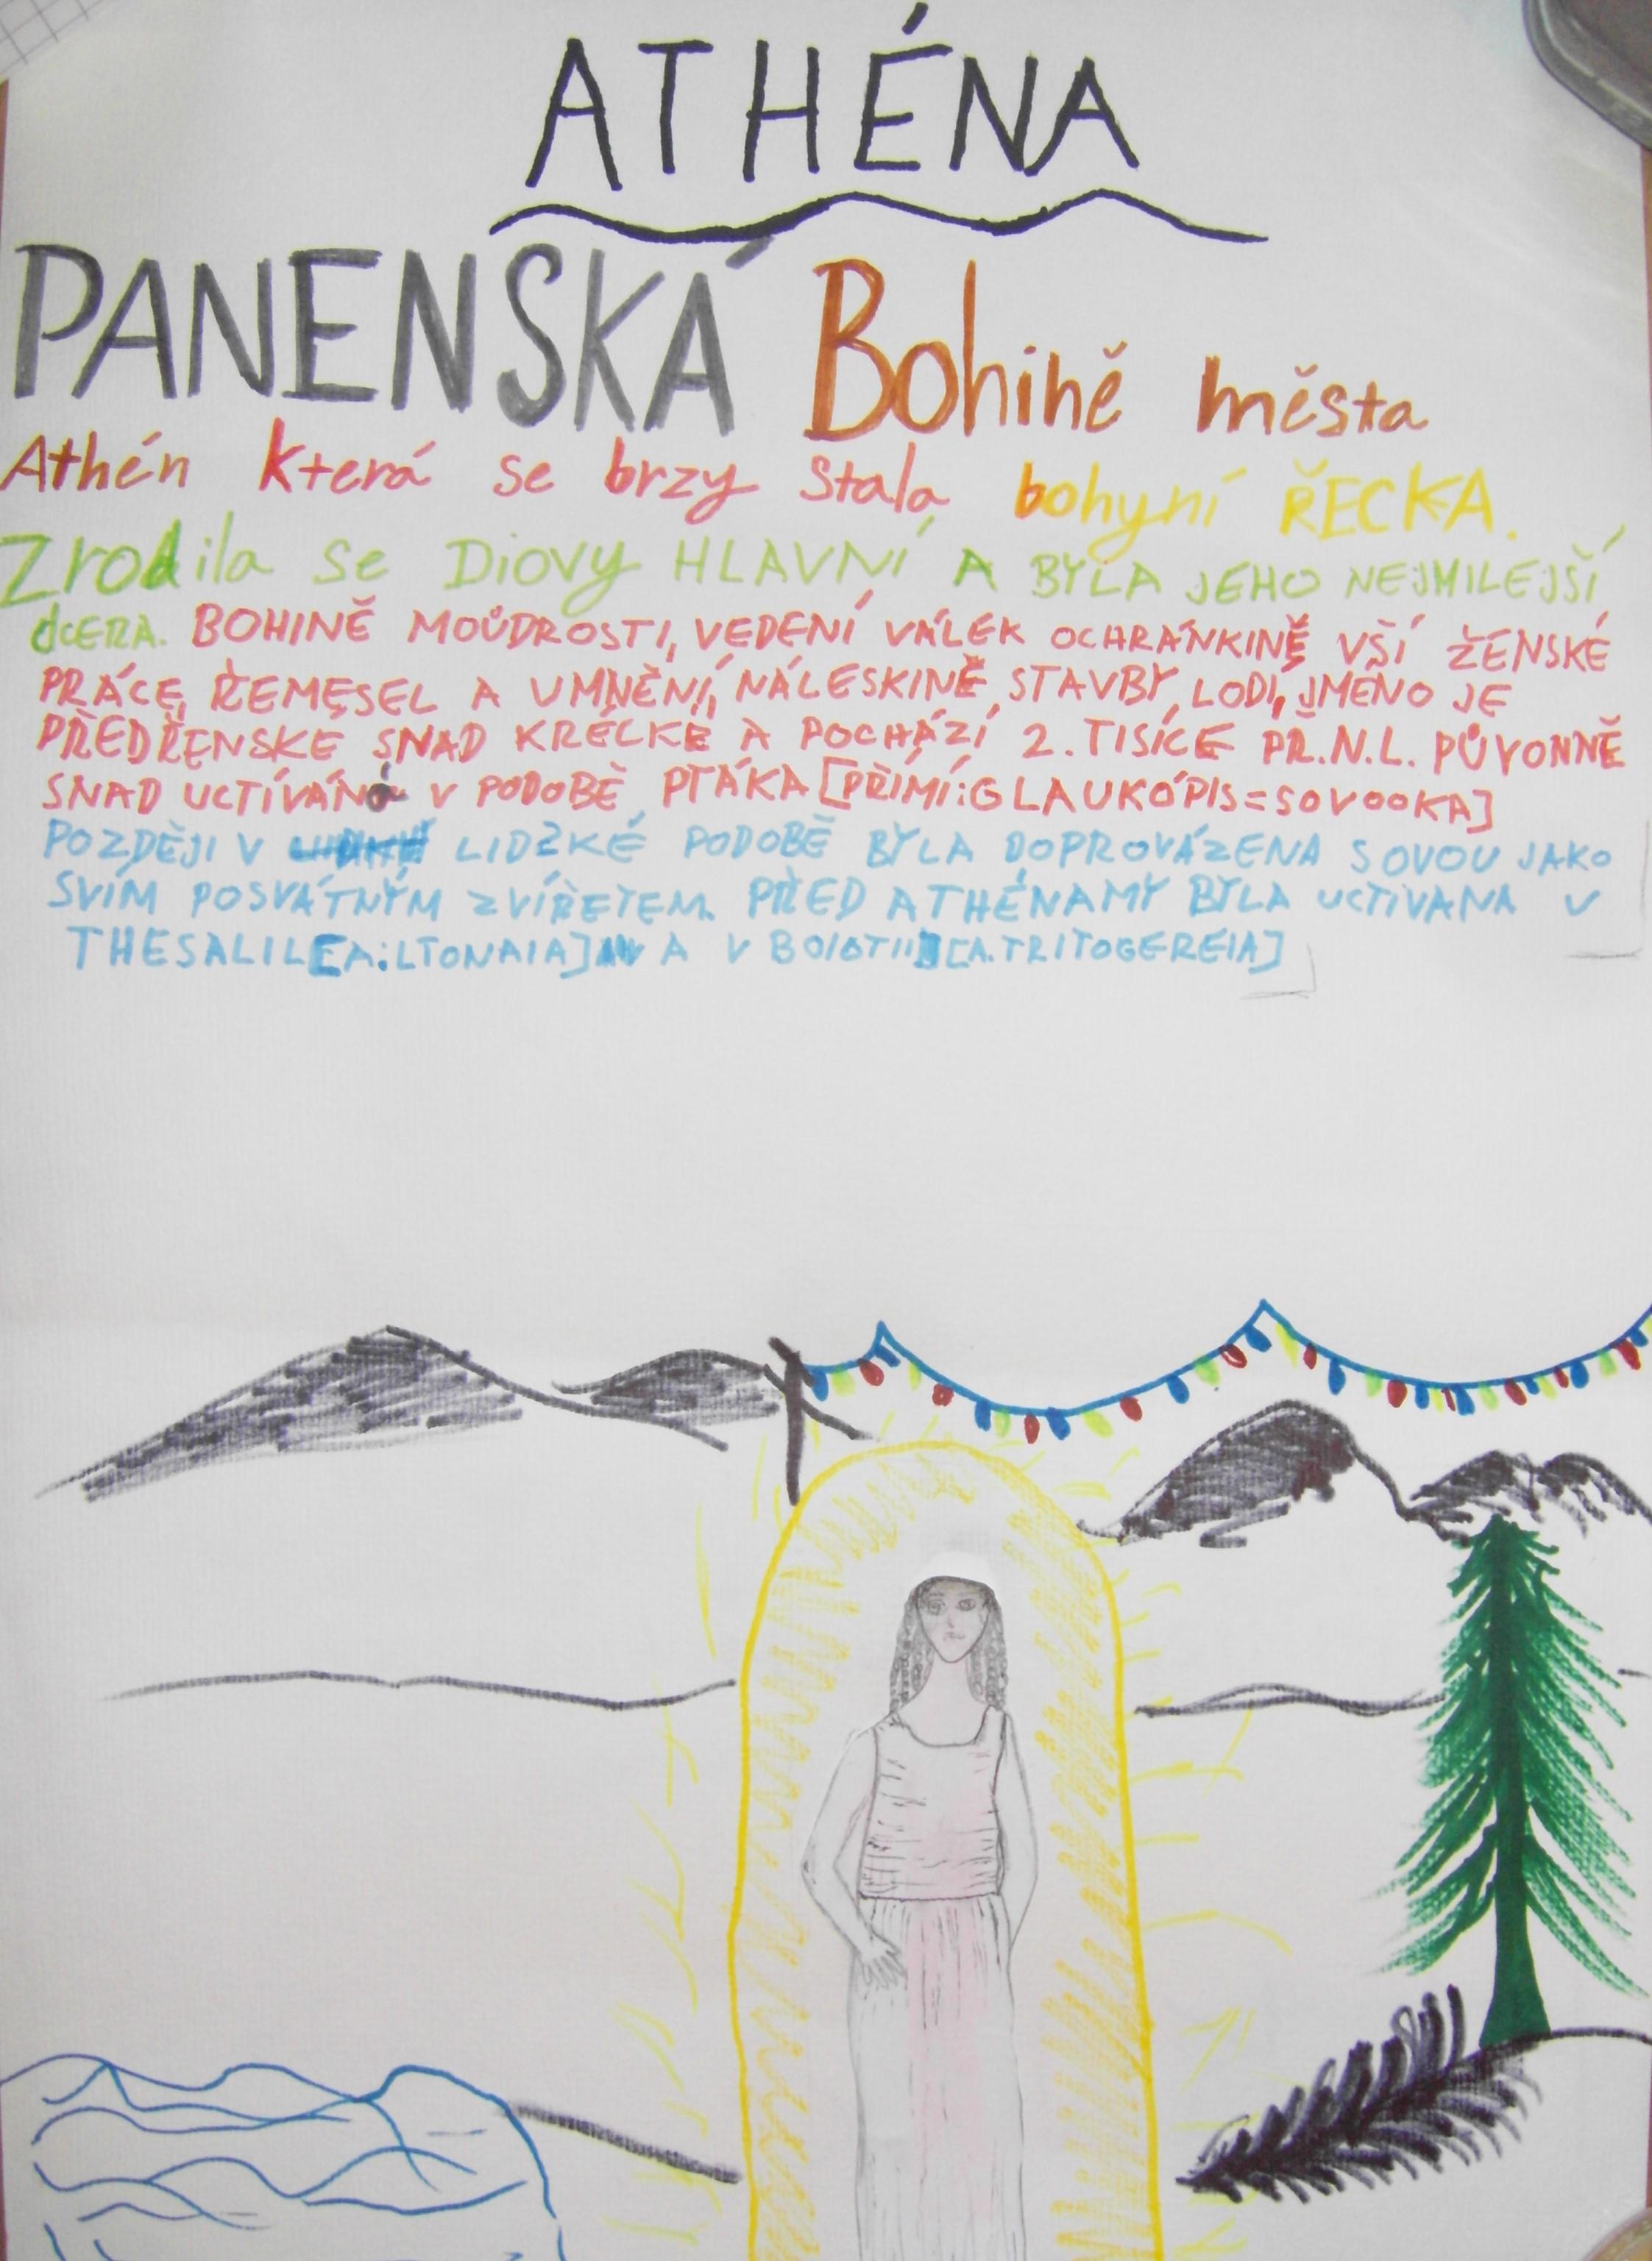 ATHÉNA
PANENSKÁ Bohině města
Athén která se brzy stala bohyní ŘECKA.
Zrodila se Diovy HLAVNÍ A BYLA JEHO NEJMILEJŠÍ
dCERA. BOHINĚ MOŮDROSTI, VEDENÍ VÁLEK OCHRÁNKINĚ VŠÍ ŽENSKÉ
PRÁCE, ŘEMESEL A UMNĚNÍ, NÁLESKINĚ STAVBY LODÍ, JMÉNO JE
PŘEDŘENSKÉ SNAD KRÉCKÉ A POCHÁZÍ 2. TISÍCE PŘ.N.L. PŮVONNĚ
SNAD UCTÍVÁNá V PODOBĚ PTÁKA [PŘÍMÍ:GLAUKÓPIS=SOVOOKA]
POZDĚJI V LIDZKÉ PODOBĚ BYLA DOPROVÁZENA SOVOU JAKO
SVÍM POSVÁTNÝM ZVÍŘETEM. PŘED ATHÉNAMY BYLA UCTIVANA V
THESALIL[A:LTONAIA] A V BOIOTII [A.TRITOGEREIA]